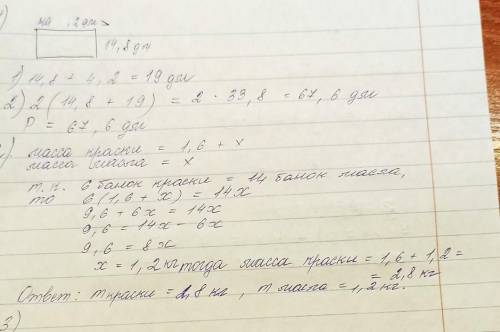 на 4,2 дм >
14,8 дм
1) 14,8 + 4,2 = 19 дм
2) 2 (14,8 + 19) = 2 · 33,8 = 67,6 дм
P = 67,6 дм
масса краски = 1,6 + x
масса масла = x
т.к. 6 банок краски = 14 банок масла,
то 6(1,6 + x) = 14x
9,6 + 6x = 14x
9,6 = 14x - 6x
9,6 = 8x
x = 1,2 кг тогда масса краски = 1,6 + 1,2 =
= 2,8 кг
Ответ: m краски = 2,8 кг, m масла = 1,2 кг.
3)